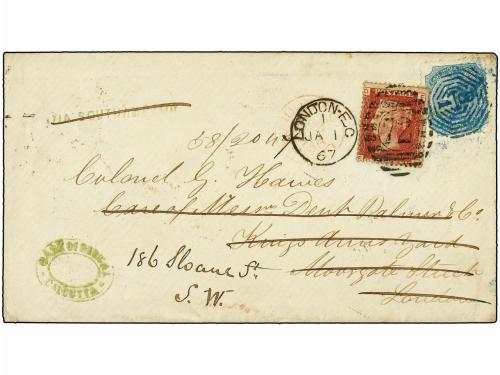 VIA SOUTHAMPTON
LONDON-E.C
1
JA 1
67
72
Colonel G. Haines
Care of Messrs Dent Palmer & Co.
Kings Arms Yard
186 Sloane St. Moorgate Street
S. W.
London
CALCUTTA